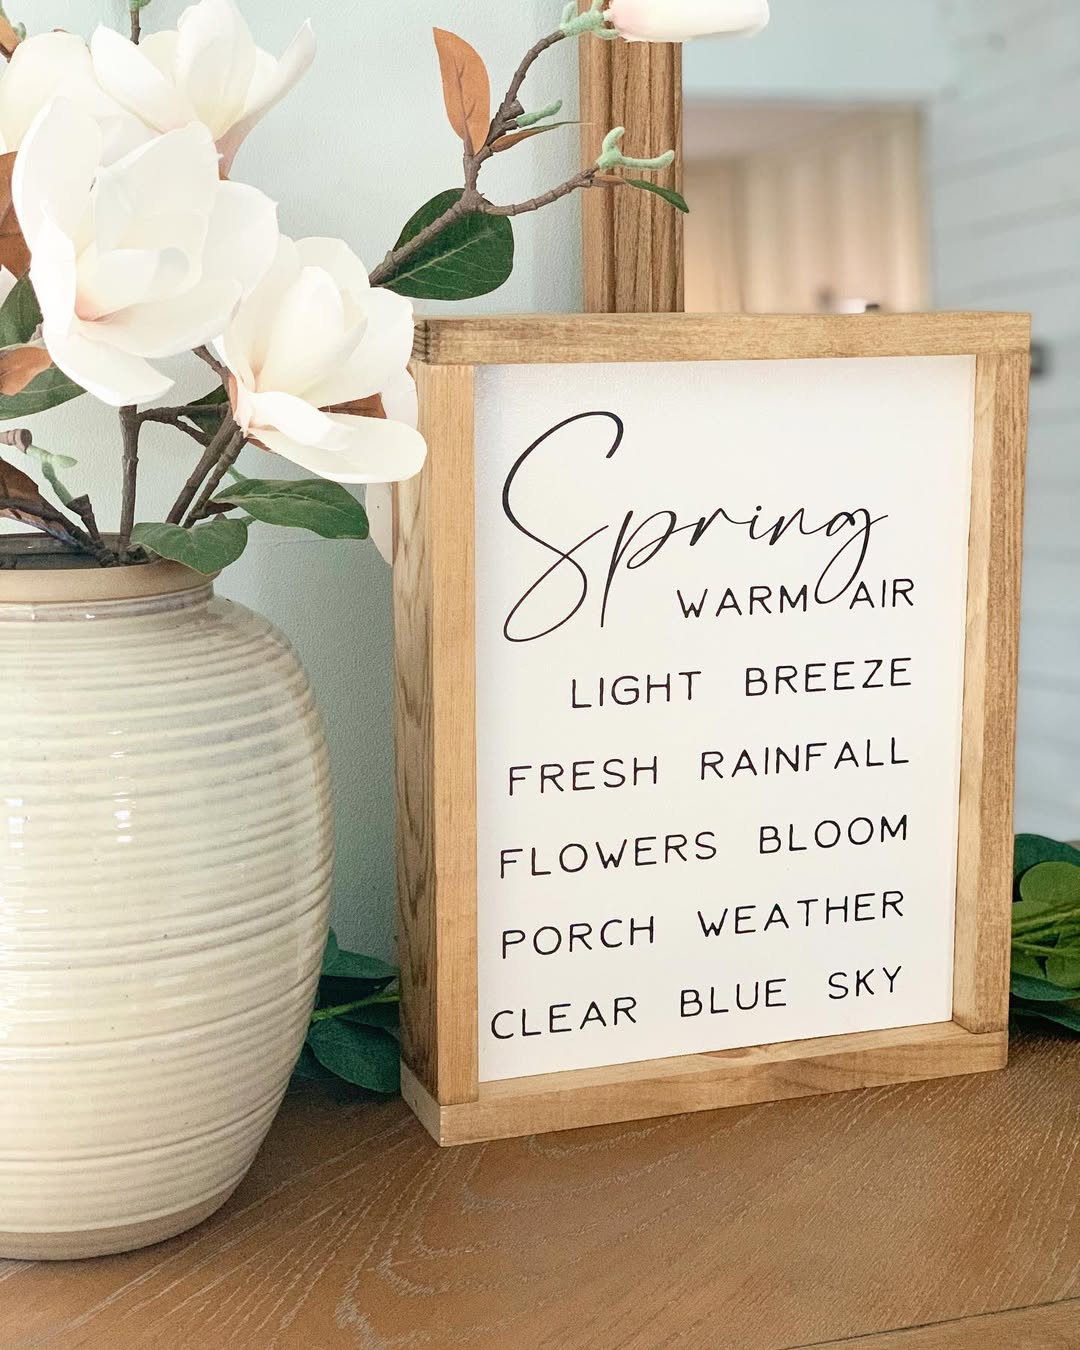 Spring
WARM AIR
LIGHT BREEZE
FRESH RAINFALL
FLOWERS BLOOM
PORCH WEATHER
CLEAR BLUE SKY